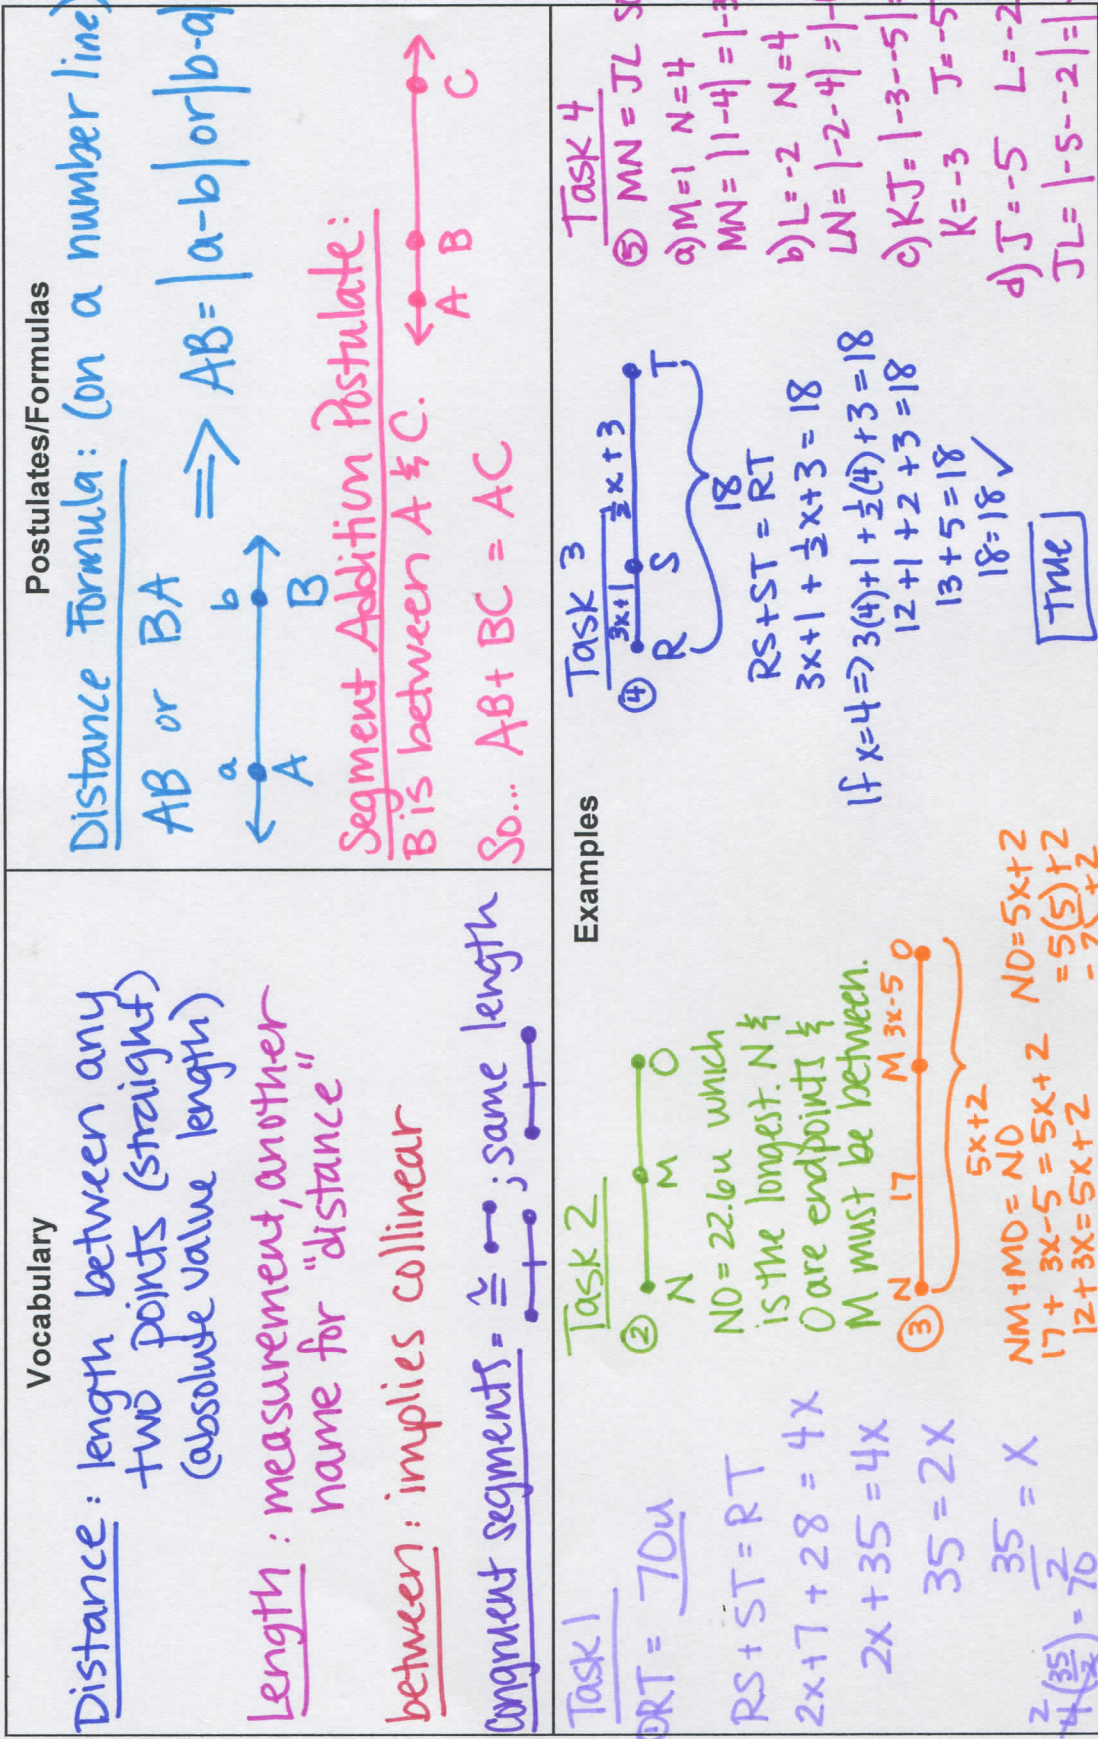 Vocabulary
Distance: length between any
two points (straight)
(absolute value length)
Length: measurement, another
name for "distance"
between: implies collinear
congruent segments = ≅ ; same length
Postulates/Formulas
Distance Formula: (on a number line)
AB or BA
a b
A B
⇒ AB = |a-b| or |b-a|
Segment Addition Postulate:
B is between A & C.
A B C
So... AB + BC = AC
Examples
Task 1
① RT = 70u
RS + ST = RT
2x + 7 + 28 = 4x
2x + 35 = 4x
35 = 2x
35/2 = x
4(35/2) = 70
Task 2
②
N M O
NO = 22.6u which
is the longest. N &
O are endpoints &
M must be between.
③ N 17 M 3x-5 O
5x+2
NM + MO = NO
17 + 3x-5 = 5x+2
12 + 3x = 5x+2
NO = 5x+2
= 5(5)+2
Task 3
④ 3x+1 ½x+3
R S T
18
RS + ST = RT
3x+1 + ½x+3 = 18
If x=4 => 3(4)+1 + ½(4)+3 = 18
12+1+2+3 = 18
13+5 = 18
18 = 18 ✓
True
Task 4
⑤ MN = JL
a) M=1 N=4
MN = |1-4| = |-3
b) L=-2 N=4
LN = |-2-4| = |-
c) KJ = |-3--5| =
K=-3 J=-5
d) J=-5 L=-2
JL = |-5--2| = |